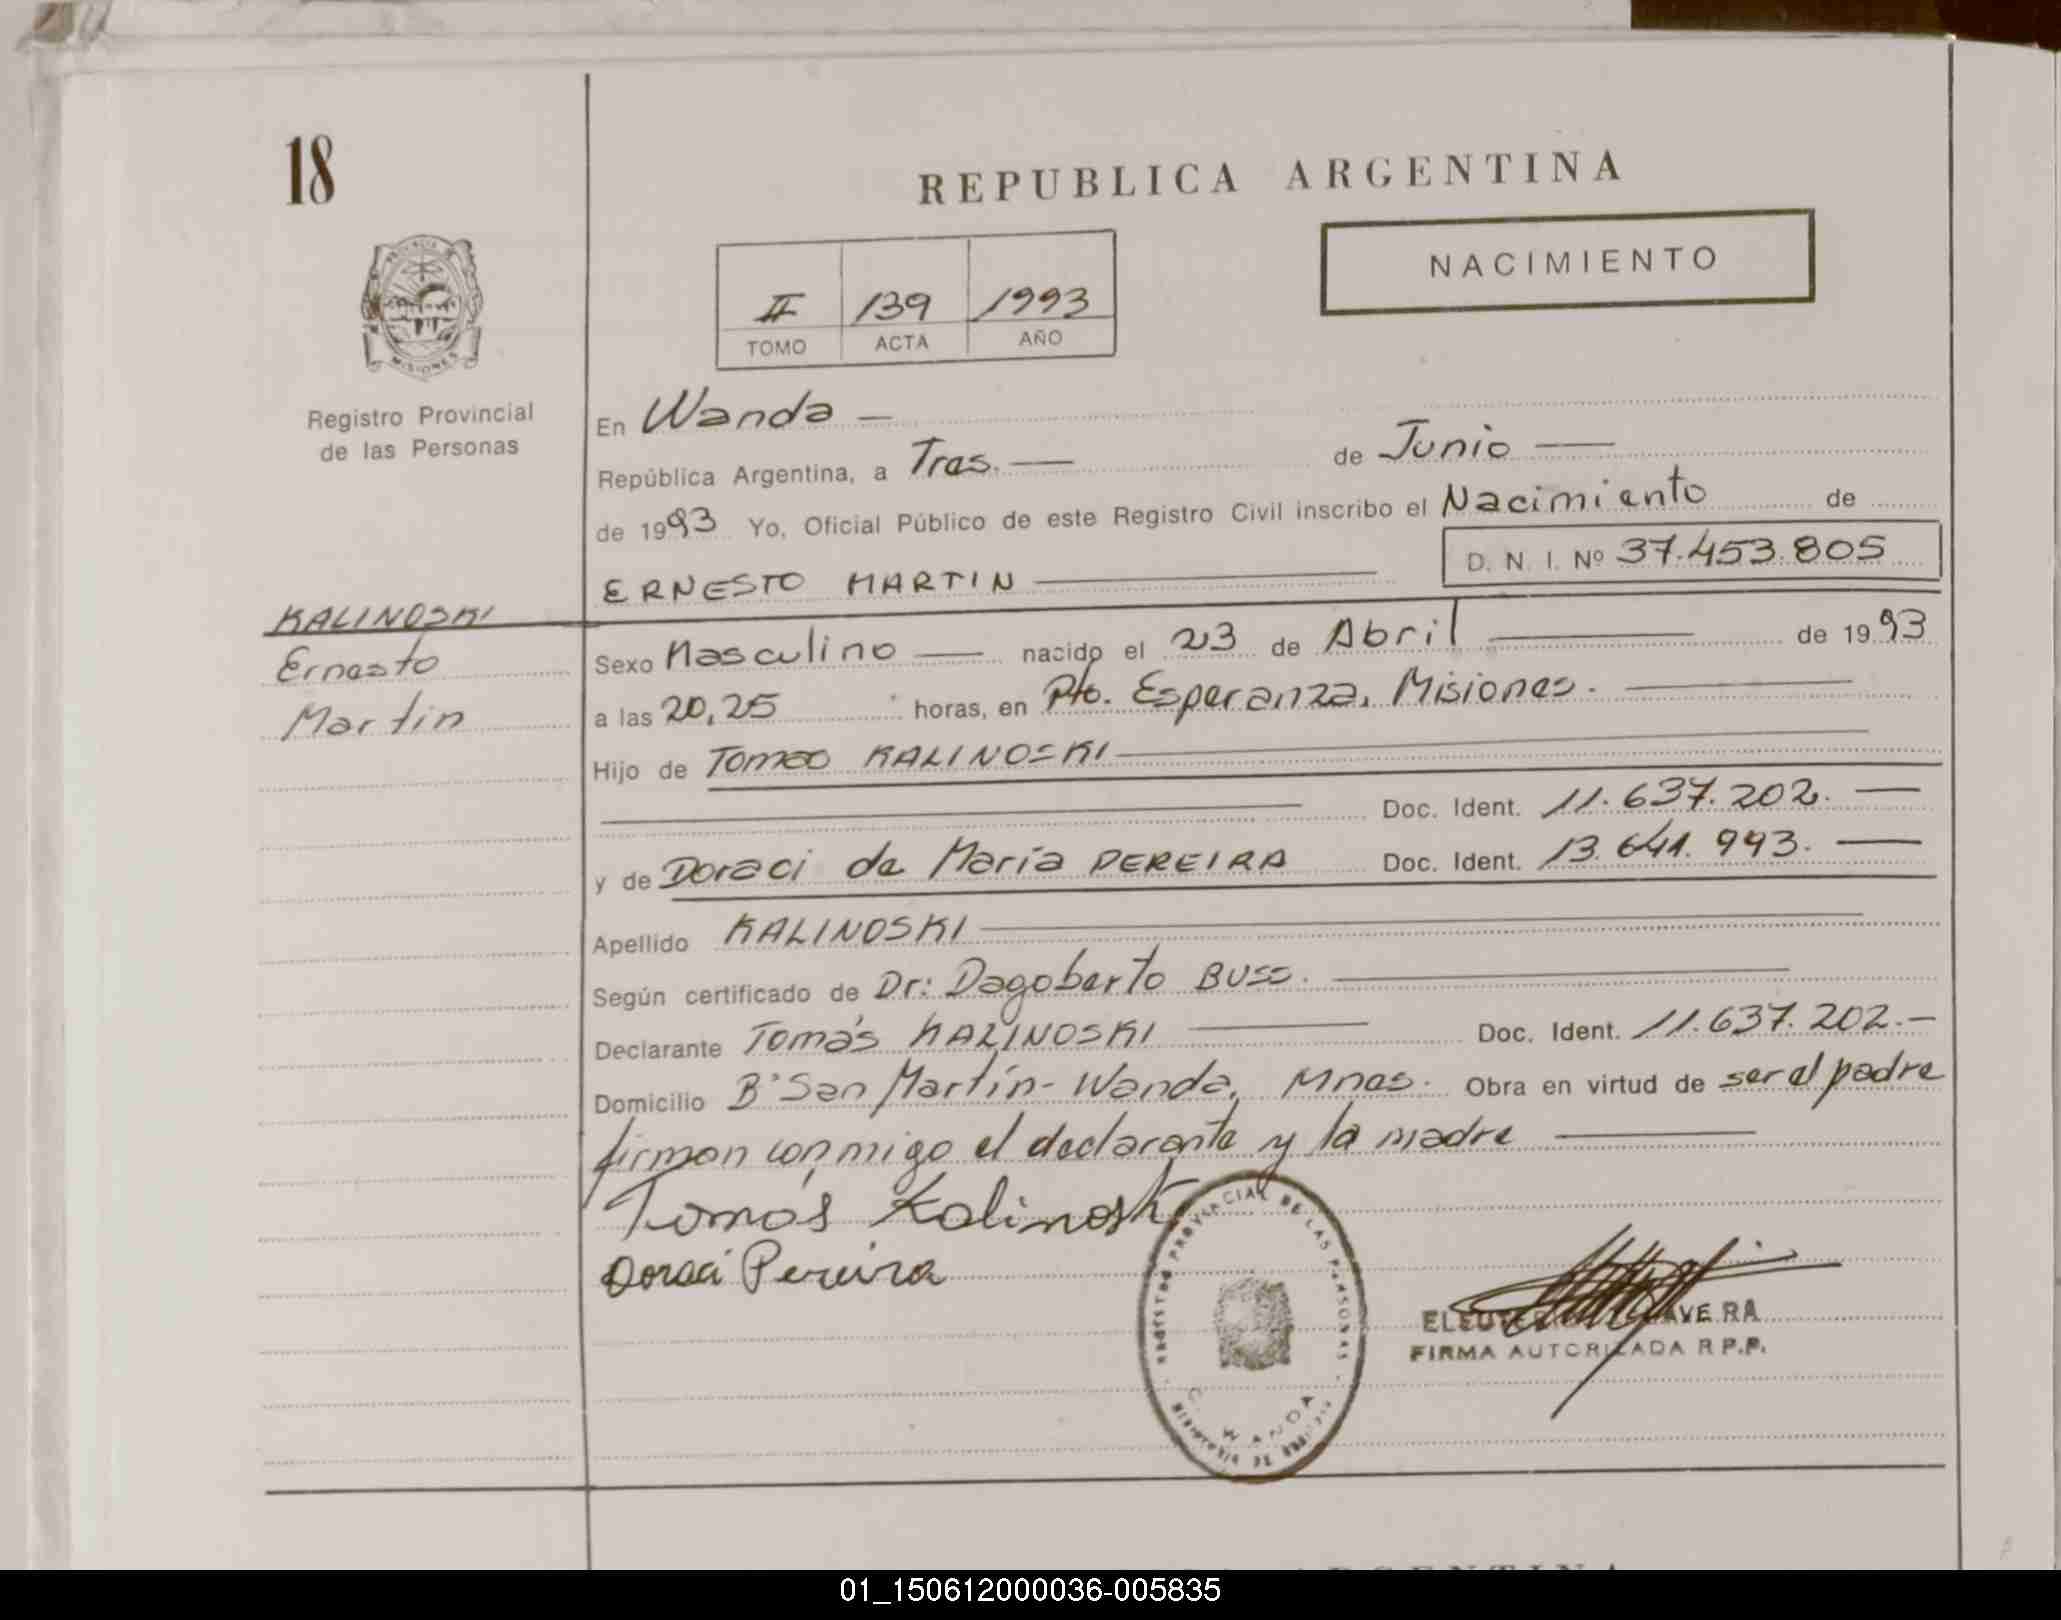 18
REPUBLICA ARGENTINA
NACIMIENTO
PROVINCIA DE
MISIONES
II 139 1993
TOMO ACTA AÑO
Registro Provincial
de las Personas
En Wanda —
República Argentina, a Tres. — de Junio —
de 1993 Yo, Oficial Público de este Registro Civil inscribo el Nacimiento de
D. N. I. Nº 37.453.805
ERNESTO MARTIN
KALINOSKI
Ernesto
Martin
Sexo Masculino — nacido el 23 de Abril — de 1993
a las 20,25 horas, en Pto. Esperanza, Misiones. —
Hijo de Tomás KALINOSKI —
Doc. Ident. 11.637.202. —
y de Doraci de María PEREIRA Doc. Ident. 13.641.993. —
Apellido KALINOSKI —
Según certificado de Dr: Dagoberto BUSS. —
Declarante Tomás KALINOSKI — Doc. Ident. 11.637.202.—
Domicilio Bº San Martín- Wanda, Mnes. Obra en virtud de ser el padre
firman conmigo el declarante y la madre —
Tomás Kalinoski
Doraci Pereira
REGISTRO PROVINCIAL DE LAS PERSONAS
WANDA
FIRMA AUTORIZADA R.P.P.
01_150612000036-005835